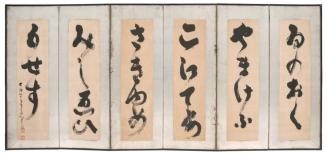 ゐのおく
やまけふ
こ江てあ
さきゆめ
みし恵ひ
もせす